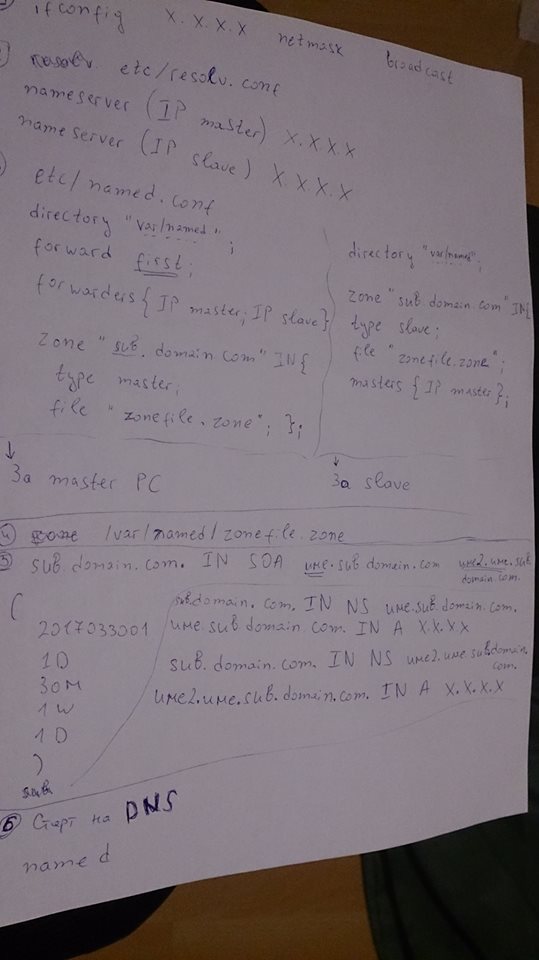 ifconfig X.X.X.X netmask broadcast
etc/resolv.conf
nameserver (IP master) X.X.X.X
nameserver (IP slave) X.X.X.X
etc/named.conf
directory "var/named";
forward first;
forwarders{ IP master; IP slave}
zone "sub.domain.com" IN{
type master;
file "zonefile.zone"; };
↓
За master PC
directory "var/named";
zone "sub domain.com" IN{
type slave;
file "zonefile.zone";
masters { IP master };
↓
За slave
④ /var/named/zonefile.zone
⑤ sub.domain.com. IN SOA име.sub domain.com име2.име.sub.
domain.com.
(
2017033001
1D
30M
1W
1D
)
sub.domain.com. IN NS име.sub.domain.com.
име.sub domain.com. IN A X.X.X.X
sub.domain.com. IN NS име2.име.sub.domain.
com.
име2.име.sub.domain.com. IN A X.X.X.X
⑥ Старт на DNS
named